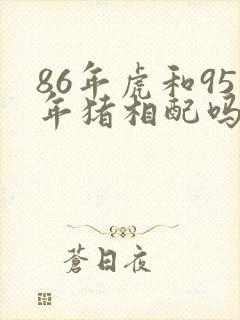 86年虎和95
年猪相配吗
蒼日夜